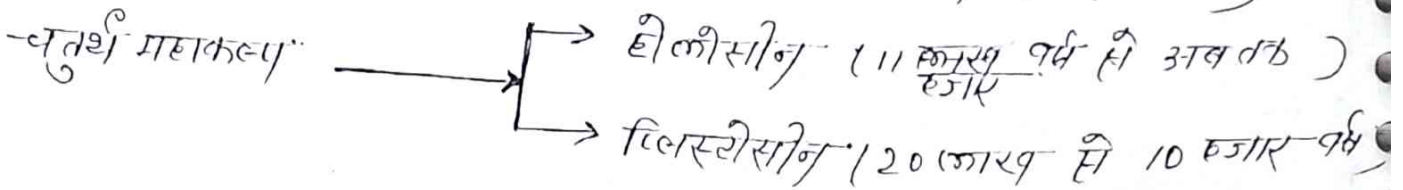 चतुर्थ महाकल्प
होलोसीन (11 लाख हजार वर्ष से अब तक)
प्लिस्टोसीन (20 लाख से 10 हजार वर्ष)